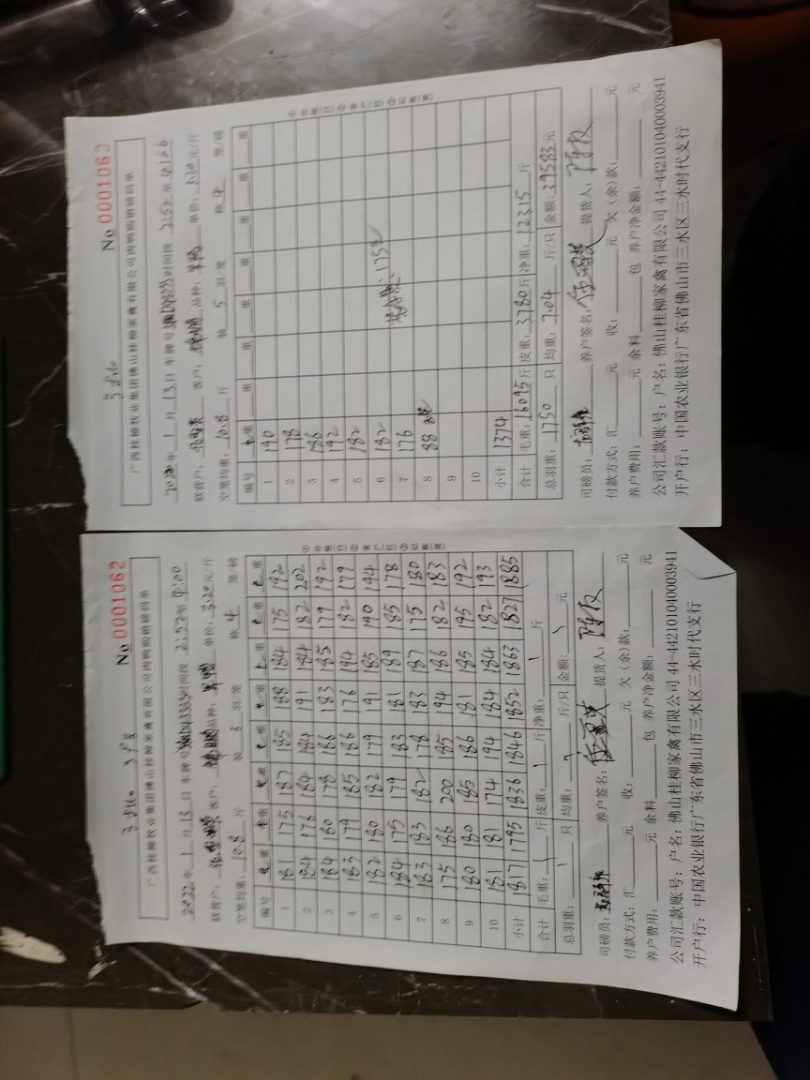 No 0001062
广西桂柳牧业集团佛山桂柳家禽有限公司肉鸭购销磅码单
2022年 1 月 13 日 车牌号 时间段 2:52至4:00
联营户: 客户: 品种: 单价: 3.20元/斤
空笼均重: 10.8 斤 装 5 羽/笼 秤 4 笼/磅
编号
1 181 175 187 185 188 184 175 192
2 184 176 184 184 191 184 182 202
3 184 180 178 186 183 185 179 192
4 183 179 185 186 176 194 182 179
5 182 180 182 179 191 185 190 194
6 184 175 179 183 181 189 185 178
7 183 183 182 178 183 187 175 180
8 175 186 200 185 194 186 182 183
9 180 180 185 186 181 185 195 192
10 181 181 174 194 184 184 182 193
小计 1817 1795 1836 1846 1852 1863 1827 1885
合计 毛重: 斤 皮重: 斤 净重: 斤
总羽重: 只 均重: 斤/只 金额: 元
司磅员: 养户签名: 提货人:
付款方式: 汇 元 收: 元 欠(余)款: 元
养户费用: 元 余料 包 养户净金额: 元
公司汇款账号: 户名: 佛山桂柳家禽有限公司 44-442101040003941
开户行: 中国农业银行广东省佛山市三水区三水时代支行
No 0001063
广西桂柳牧业集团佛山桂柳家禽有限公司肉鸭购销磅码单
2022年 1 月 13 日 车牌号 时间段 2:52至
联营户: 客户: 品种: 单价: 3.20元/斤
空笼均重: 10.8 斤 装 5 羽/笼 秤 4 笼/磅
编号
1 190
2 178
3 186
4 192
5 182
6 182
7 176
8 88
9
10
小计 1374
合计 毛重: 16095斤 皮重: 3780斤 净重: 12315 斤
总羽重: 1750 只 均重: 7.04 斤/只 金额: 39583元
司磅员: 养户签名: 提货人:
付款方式: 汇 元 收: 元 欠(余)款: 元
养户费用: 元 余料 包 养户净金额: 元
公司汇款账号: 户名: 佛山桂柳家禽有限公司 44-442101040003941
开户行: 中国农业银行广东省佛山市三水区三水时代支行